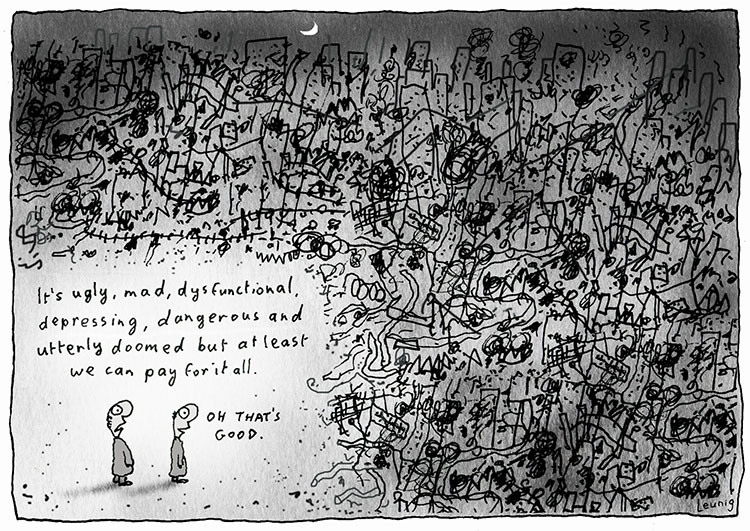 It's ugly, mad, dysfunctional,
depressing, dangerous and
utterly doomed but at least
we can pay for it all.
OH THAT'S
GOOD.
Leunig